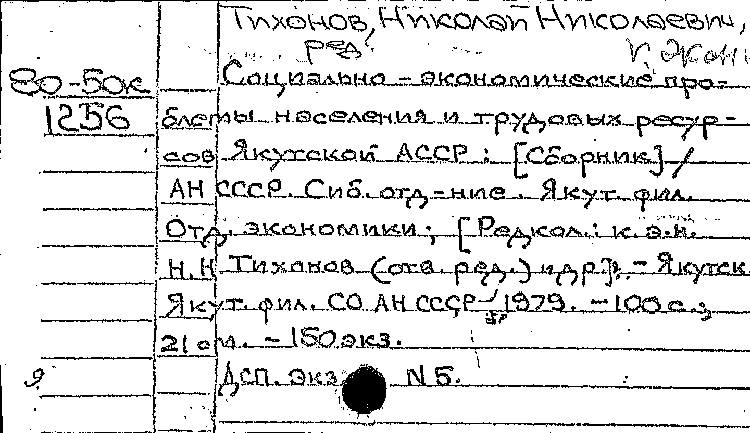 Тихонов, Николай Николаевич,
ред.
80-50к
1256
Социально-экономические про-
блемы населения и трудовых ресур-
сов Якутской АССР : [Сборник] /
АН СССР. Сиб. отд-ние. Якут. фил.
Отд. экономики ; [Редкол.: к.э.н.
Н.Н Тихонов (отв. ред.) и др.]. - Якутск
Якут. фил. СО АН СССР, 1979. - 100 с.;
21 см. - 150 экз.
Дсп. экз N 5.